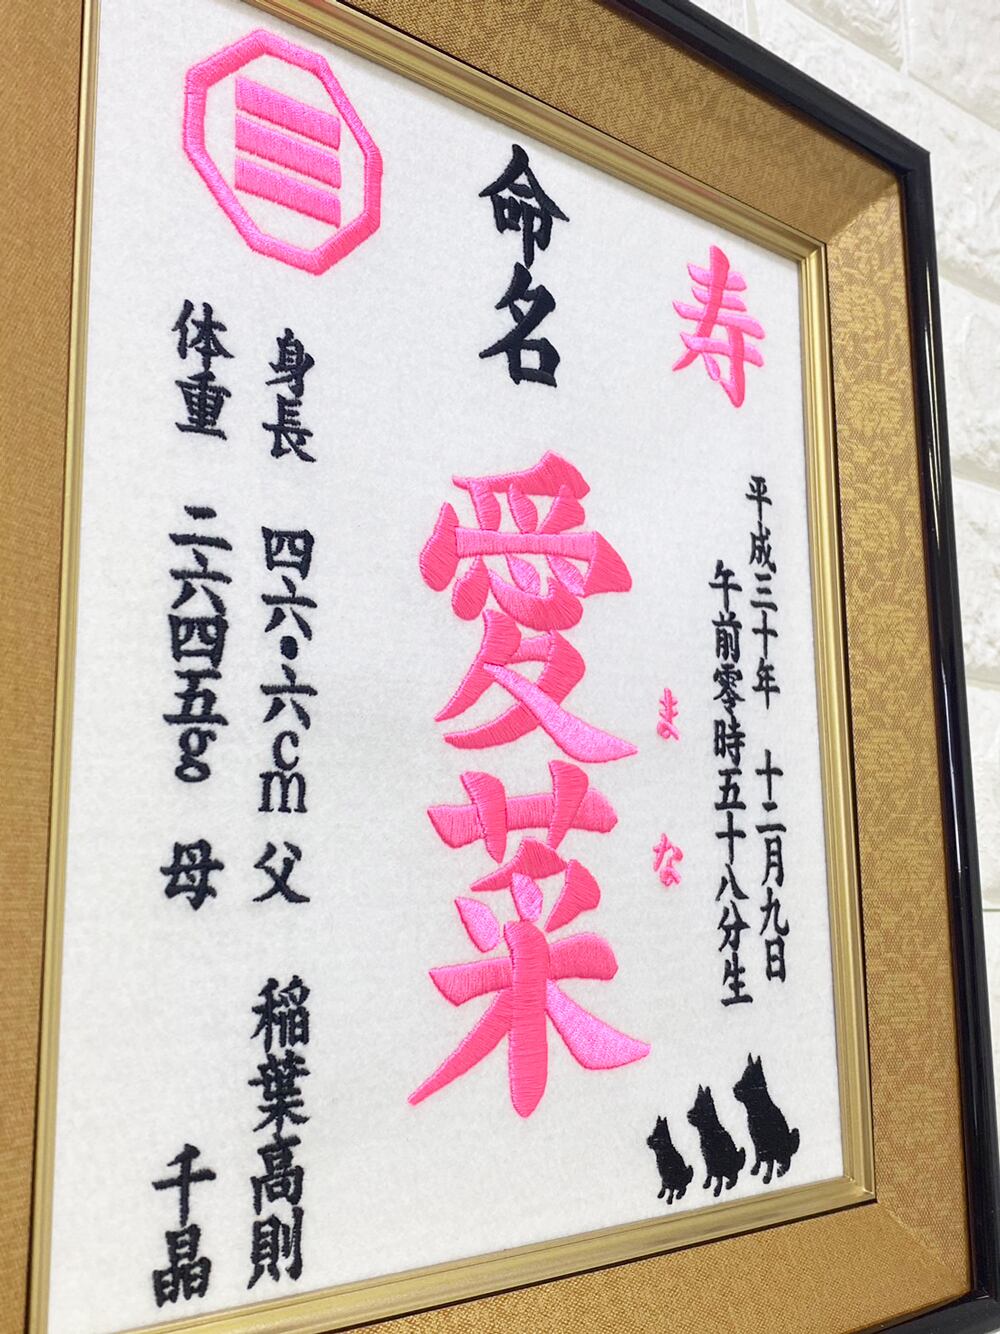 寿
平成三十年 十二月九日
午前零時五十八分生
命名
愛菜
まな
身長 四六・六cm 父 稲葉高則
体重 二六四五g 母 千晶